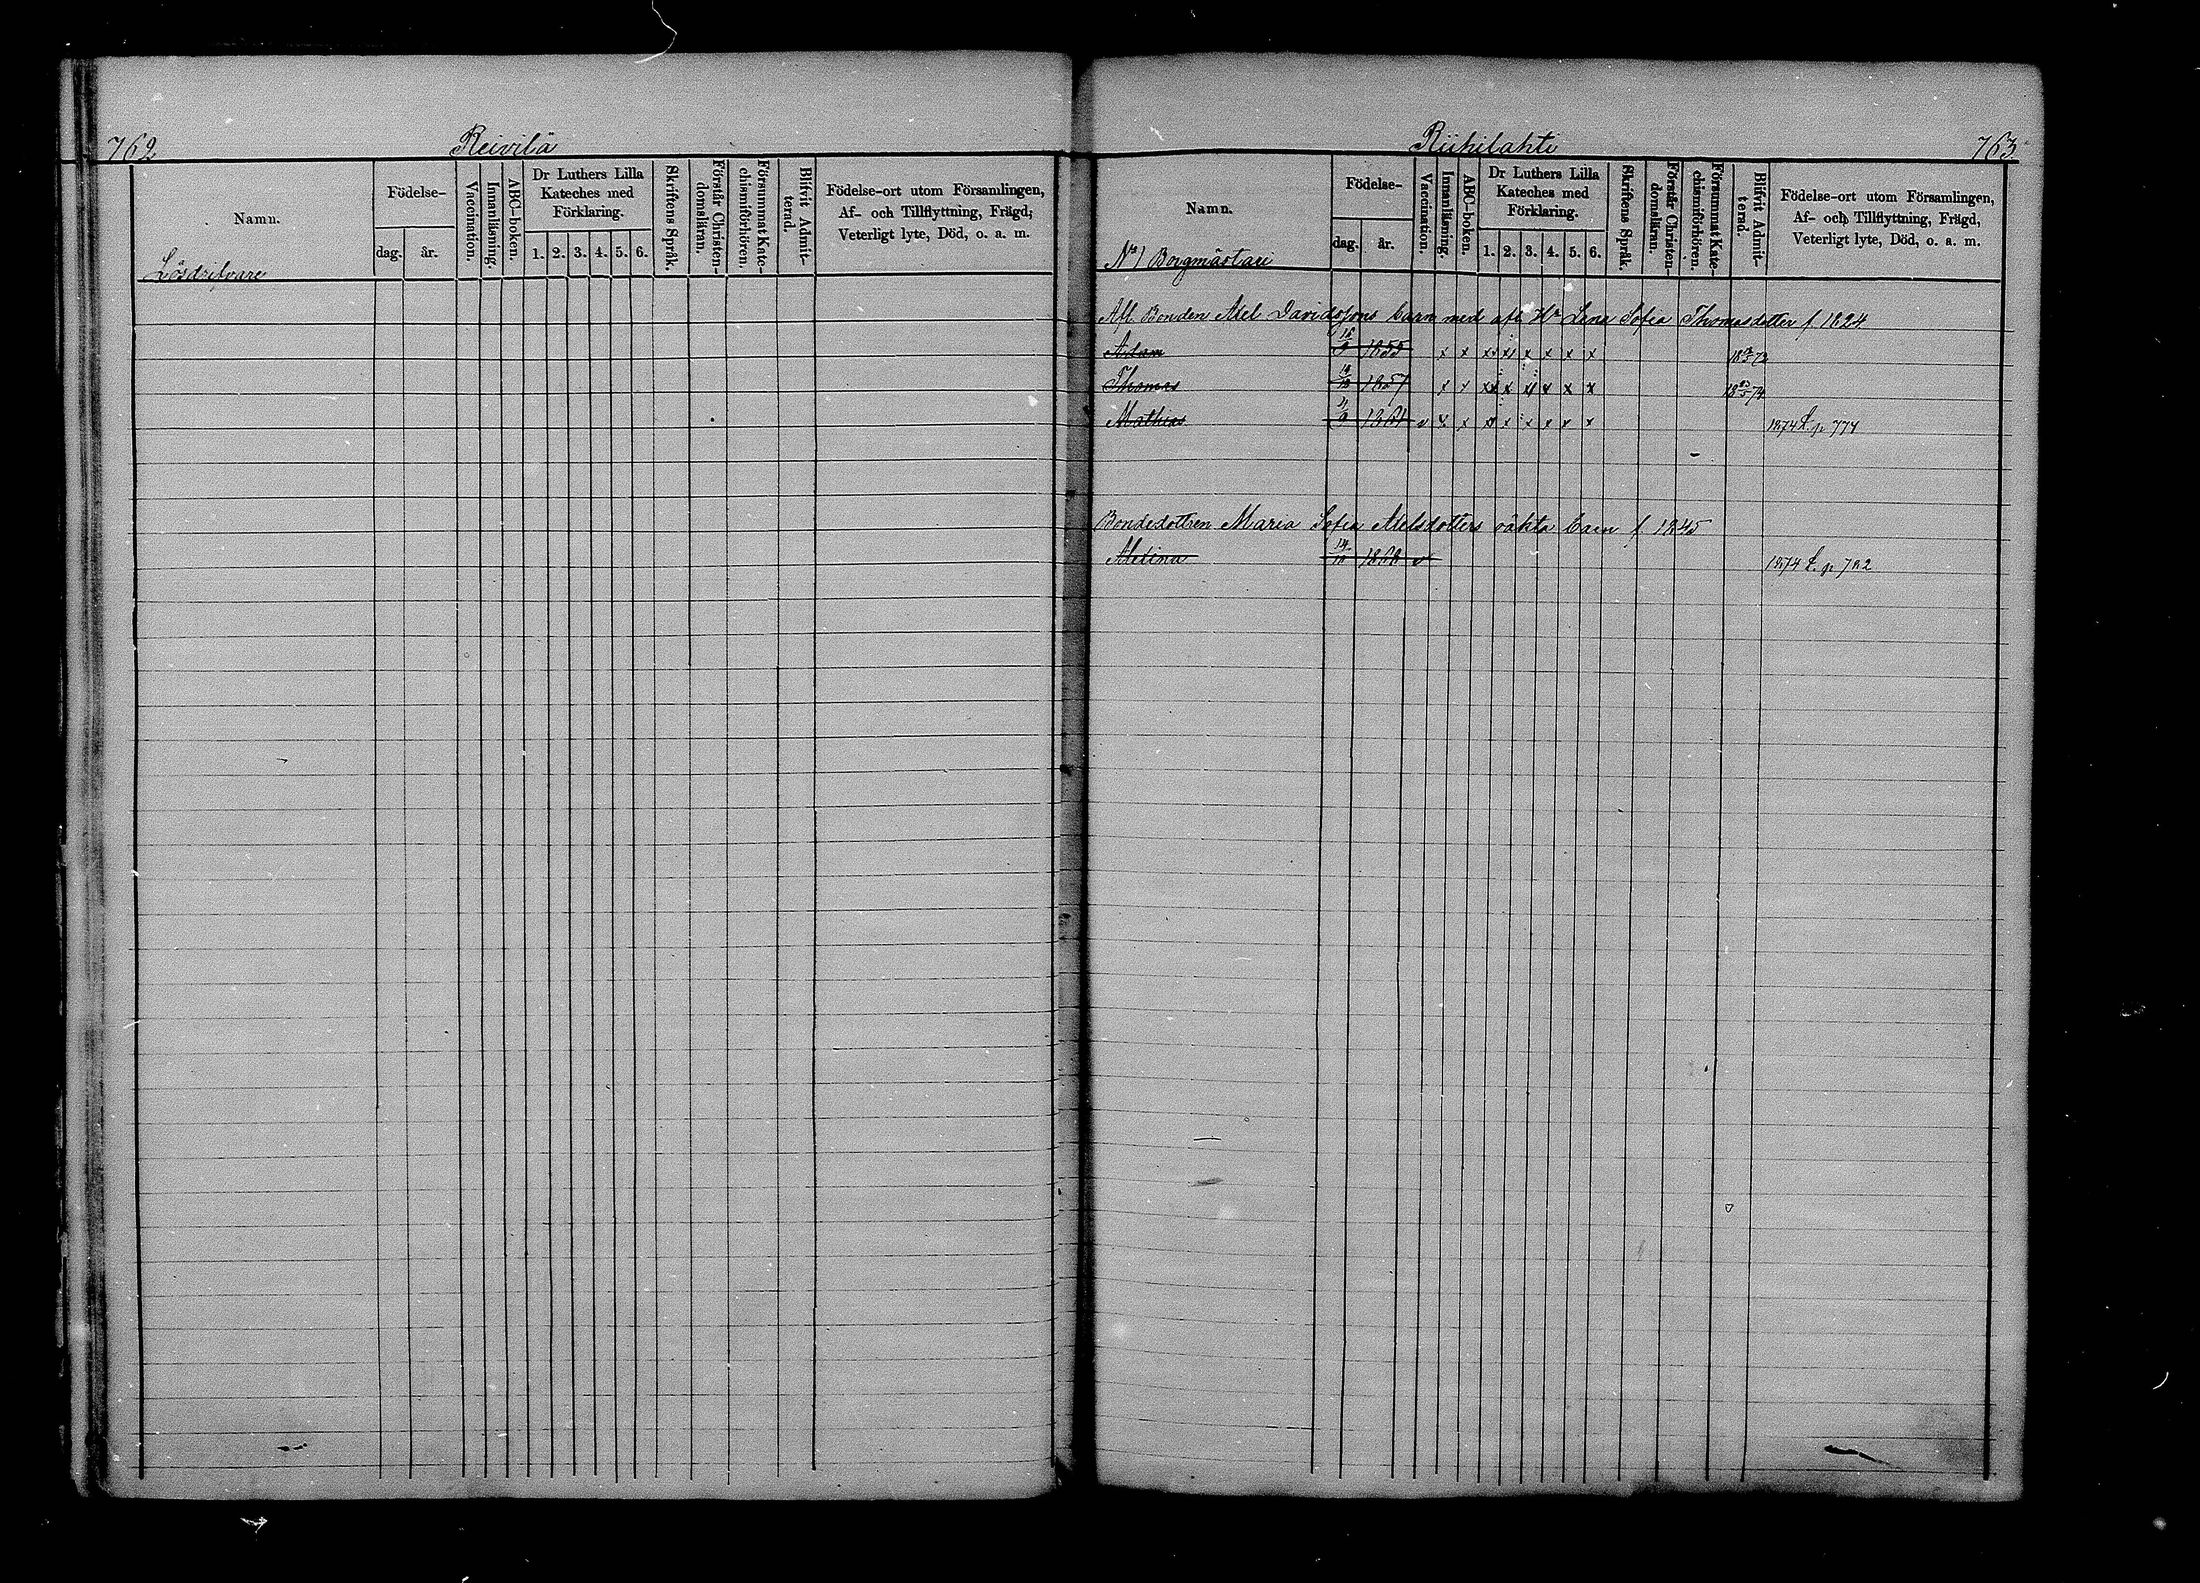 762 Reivilä
Namn. Födelse- dag. år. Vaccination. Innanläsning. ABC-boken. Dr Luthers Lilla Kateches med Förklaring. 1. 2. 3. 4. 5. 6. Skriftens Språk. Förstår Christendomsläran. Försummat Katechismiförhören. Blifvit Admitterad. Födelse-ort utom Församlingen, Af- och Tillflyttning, Frägd, Veterligt lyte, Död, o. a. m.
Lösdrifvare
Riihilahti 763
Namn. Födelse- dag. år. Vaccination. Innanläsning. ABC-boken. Dr Luthers Lilla Kateches med Förklaring. 1. 2. 3. 4. 5. 6. Skriftens Språk. Förstår Christendomsläran. Försummat Katechismiförhören. Blifvit Admitterad. Födelse-ort utom Församlingen, Af- och Tillflyttning, Frägd, Veterligt lyte, Död, o. a. m.
No 1 Borgmästari
Afl. Bonden Axel Davidssons barn med afl. Hu Lena Sofia Thomasdotter f. 1824
Adam 1855 x x xx xx x x x x
Thomas 1857 x x xx x x x x x
Mathias 11/9 1861 v x x x x x x x x 1874 L. p 774
Bondedottren Maria Sofia Axelsdotters oäkta barn f 1845
Alexina 1868 v 1874 L. p 782